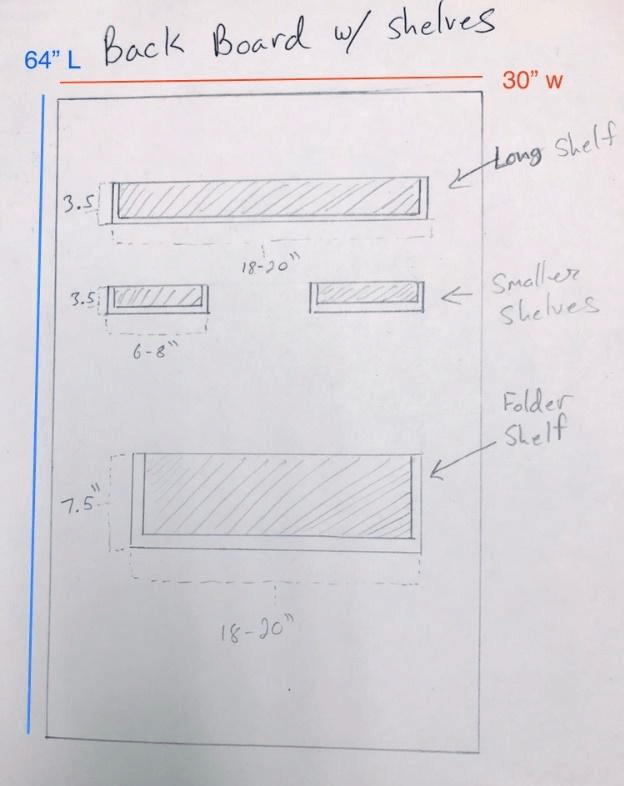 Back Board w/ shelves
64" L
30" W
Long Shelf
3.5
18-20"
3.5
Smaller
Shelves
6-8"
Folder
Shelf
7.5"
18-20"